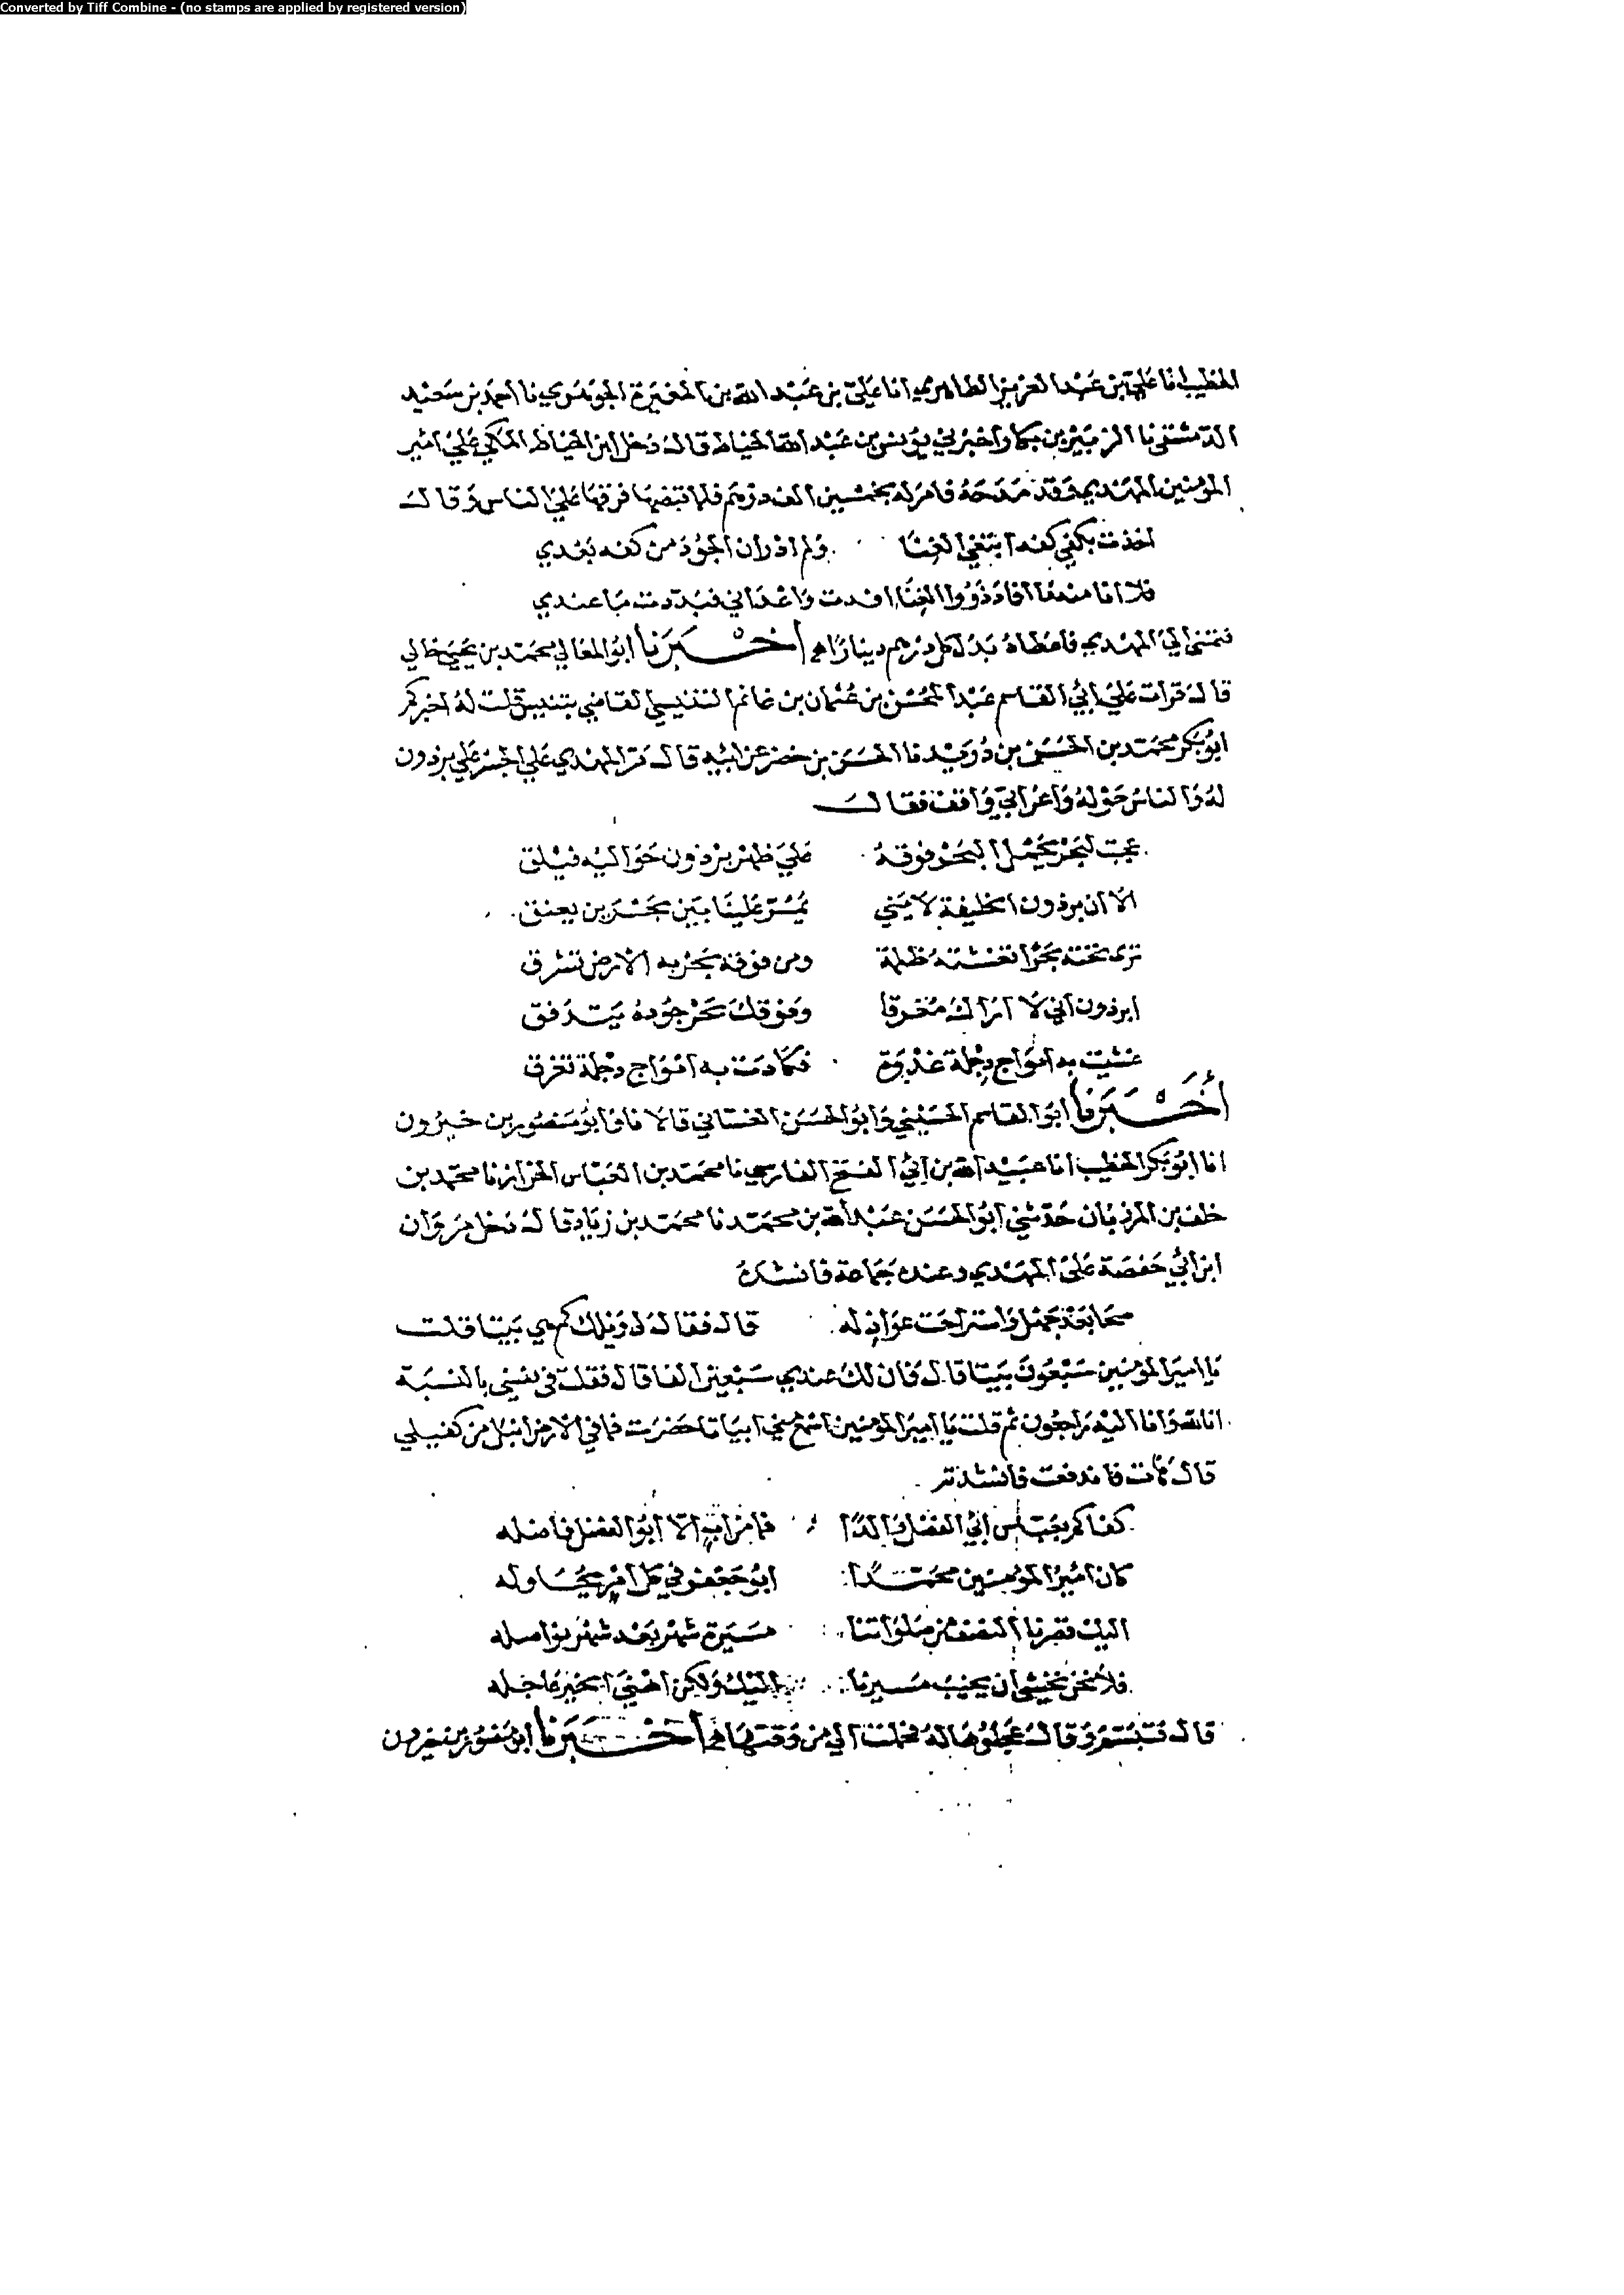 Converted by Tiff Combine - (no stamps are applied by registered version)
الخطيب انا علي بن عبد العزيز الطاهري انا علي بن عبد الله بن المغيرة الجوهري نا احمد بن سعيد
الدمشقي نا الزبير بن بكار اخبرني يونس بن عبد الله الخياط قال دخل ابن الخياط المكي علي امير
المومنين المهدي وقد مدحه فامر له بخمسين الف درهم فلما قبضها فرقها علي الناس وقال
اخذت بكفي كفه ابتغي الغنا ولم ادر ان الجود من كفه يعدي
فلا انا منه ما افاد ذوو الغنا افدت واعداني فبددت ما عندي
فنمي الي المهدي فاعطاه بدل كل درهم دينارا اخبرنا ابو المعالي محمد بن يحيي خالي
قال قرات علي ابي القاسم عبد المحسن بن عثمان بن غانم التنيسي القاضي بتنيس قلت له اخبركم
ابو بكر محمد بن الحسن بن دريد نا الحسن بن خضر عن ابيه قال مر المهدي علي الجسر علي برذون
له والناس حوله واعرابي واقف فقال
عجبت لبحر يحمل البحر فوقه علي ظهر برذون حواليه فيلق
الا ان برذون الخليفة لا يني يمر علينا بين بحرين يعنق
تري تحته بحرا تغشته ظلمة ومن فوقه بحر به الارض تشرق
ابرذون اني لا اراك مغرقا وفوقك بحر جوده يتدفق
غشيت به امواج دجلة غدوة فكادت به امواج دجلة تغرق
أخبرنا ابو القاسم الحسيني وابو الحسن الغساني قالا نا وابو منصور بن خيرون
انا ابو بكر الخطيب انا عبيد الله بن ابي الفتح الفارسي نا محمد بن العباس الخزاز نا محمد بن
خلف بن المرزبان حدثني ابو الحسن عبد الله بن محمد نا محمد بن زياد قال دخل مروان
ابن ابي حفصة علي المهدي وعنده جماعة فانشده
صحا بعد جهل واستراحت عواذله قال فقال لي ويلك كم هي بيتا قلت
يا امير المومنين سبعون بيتا قال فان لك عندي سبعين الفا قال فقلت في نفسي بالنسية
انا لله وانا اليه راجعون ثم قلت يا امير المومنين اسمع مني ابياتا حضرت فما في الارض انبل من كفيلي
قال هات فاندفعت فانشدته
كفاكم بعباس ابي الفضل والدا فما من اب الا ابو الفضل فاضله
كان امير المومنين محمدا ابو جعفر في كل امر يحاوله
اليك قصرنا النصف من صلواتنا مسيرة شهر بعد شهر نواصله
فلا نحن نخشي ان يخيب مسيرنا اليك ولكن اهني الخير عاجله
قال فتبسم وقال عجلوها له فحملت الي من وقتها اخبرنا ابو منصور بن خيرون